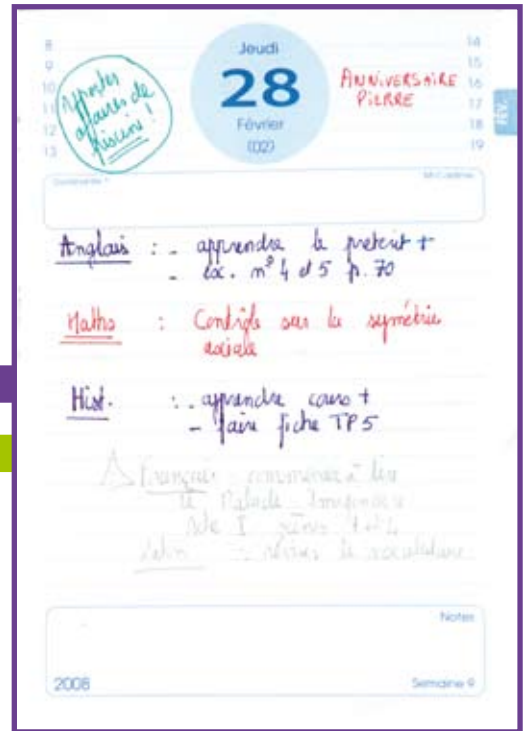 Jeudi
28
Février
(02)
8
9
10
11
12
13
14
15
16
17
18
19
apporter
affaires de
piscine !
ANNIVERSAIRE
PIERRE
Anglais : - apprendre le preterit +
- ex. n° 4 et 5 p. 70
Maths : Contrôle sur la symétrie
axiale
Hist. : - apprendre cours +
- faire fiche TP5
Français : commencer à lire
le Malade Imaginaire
Acte I scènes 1 et
Latin - réviser le vocabulaire
Notes
2008
Semaine 9